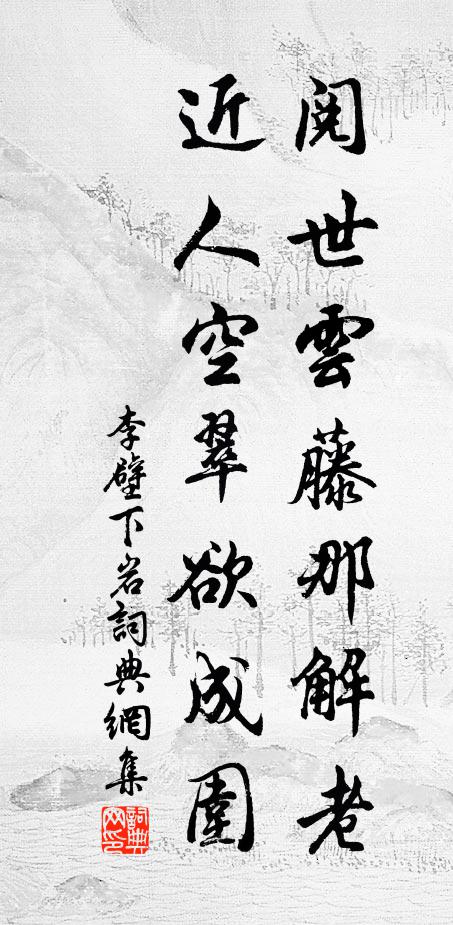 閱世雲藤那解老
近人空翠欲成圍
李壁下岩詞典網集
詞典網印